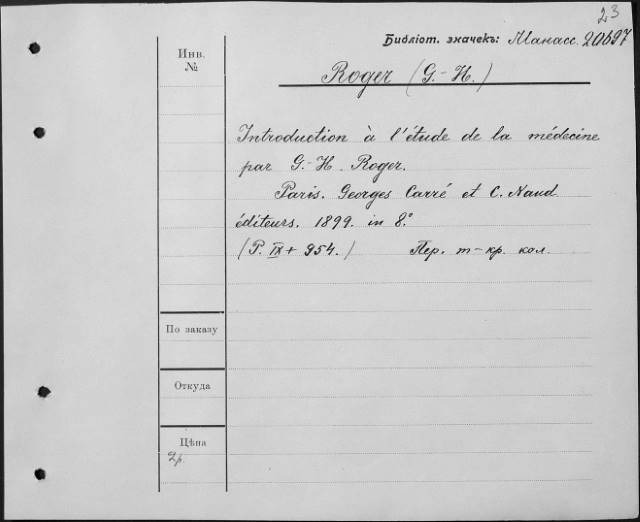 23
Библіот. значекъ: Манасс. 20697
Инв.
№
Roger (G.-H.)
Introduction à l'étude de la médecine
par G.-H. Roger.
Paris. Georges Carré et C. Naud
éditeurs. 1899. in 8.°
(P. IX + 954.) Пер. т-кр. кол.
По заказу
Откуда
Цѣна
2р.